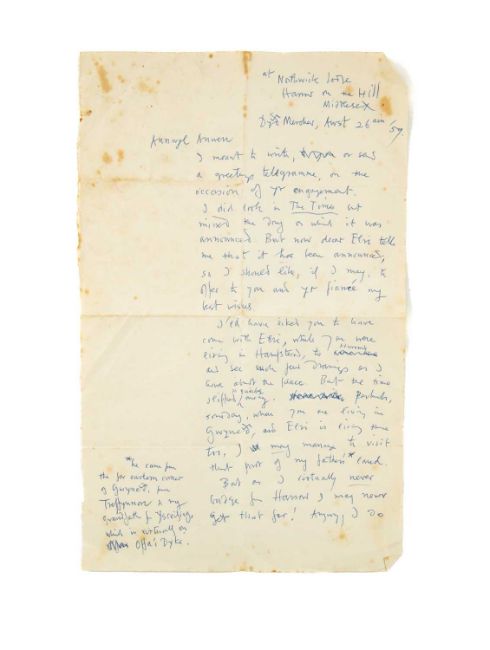 at Northwick Lodge
Harrow on the Hill
Middlesex
Dydd Mercher, Awst 26 ain /59.
Annwyl Anwen
I meant to write, or send
a greetings telegramme, on the
occasion of yr engagement.
I did look in The Times but
missed the day on which it was
announced. But now dear Elsi tells
me that it has been announced,
so I should like, if I may, to
offer to you and yr fiancé my
best wishes.
I'ld have liked you to have
come with Elsi, while you were
living in Hampstead, to Harrow
and see such few drawings as I
have about the place. But the time
slipped quickly away. Perhaps,
someday, when you are living in
Gwynedd, and Elsi is living there
too, I may manage to visit
that part of my father's* land.
But as I virtually never
budge from Harrow I may never
get that far! Anyway, I do
*he came from
the far eastern corner
of Gwynedd, from
Treffynnon & my
grandfather from Ysceifiog
which is virtually on
Offa's Dyke.